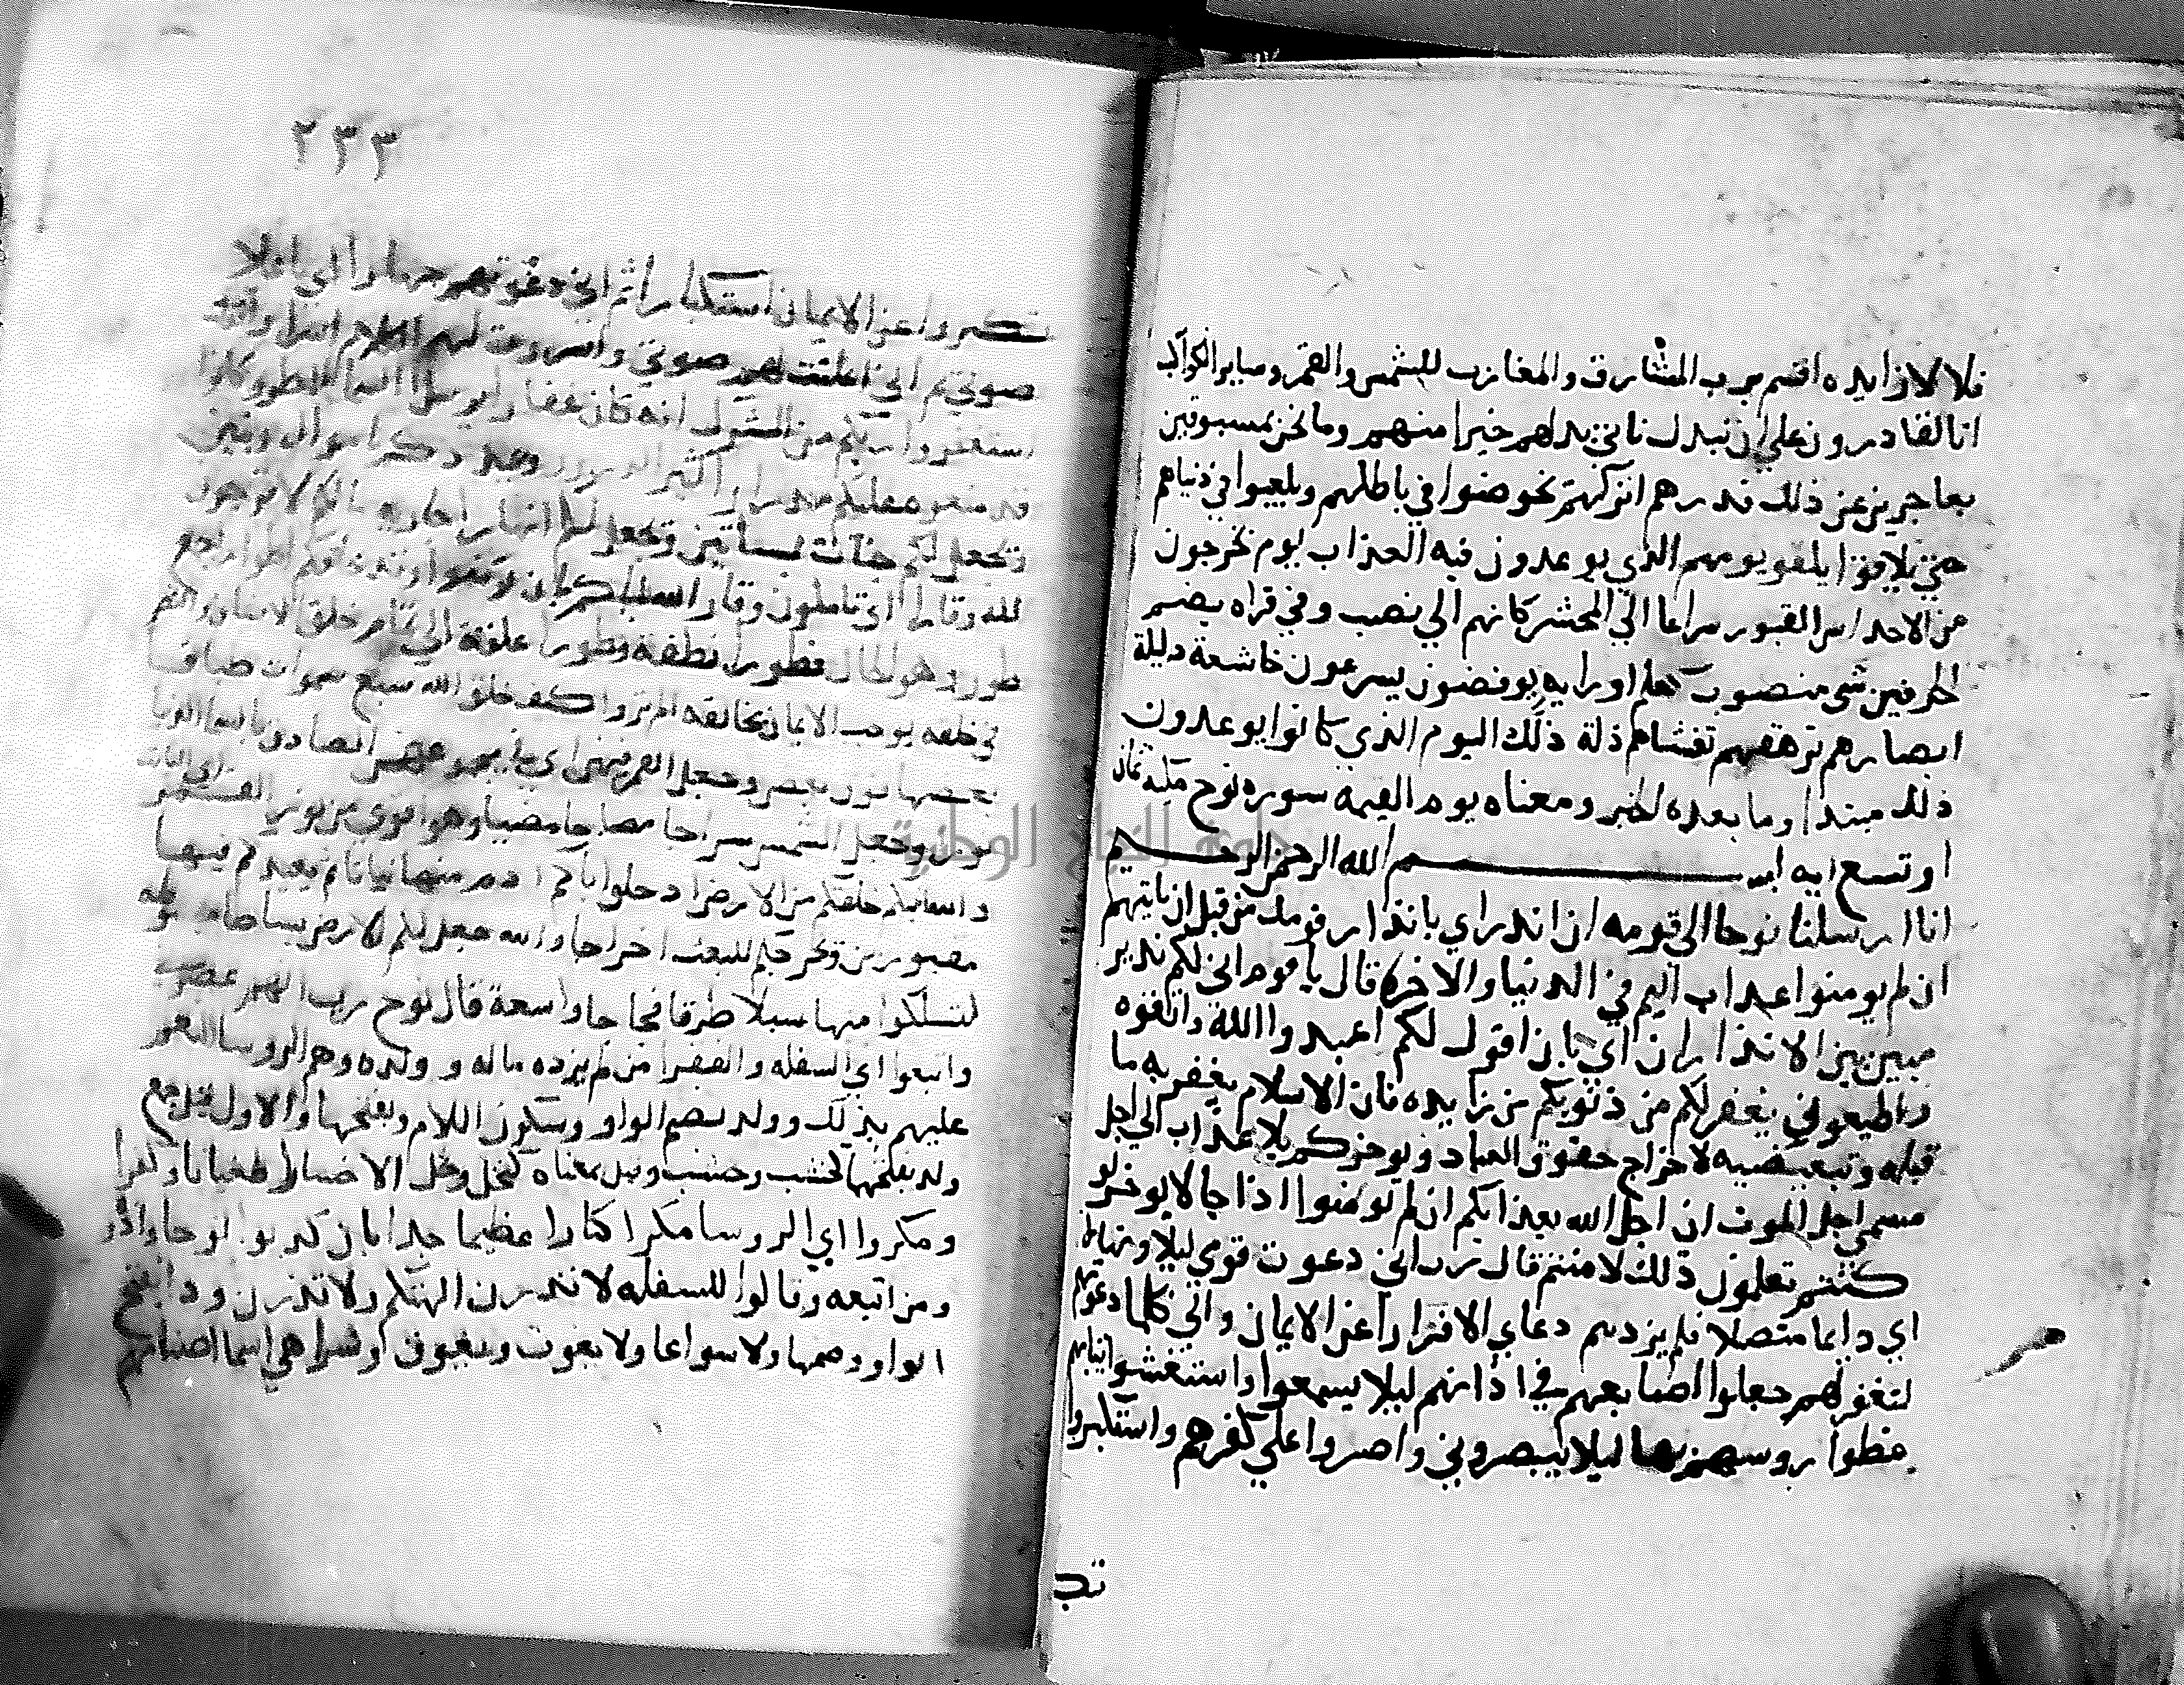 فلا لا زايده اقسم برب المشارق والمغارب للشمس والقمر وساير الكواكب
انا لقادرون علي ان نبدل ناتي بدلهم خيرا منهم وما نحن بمسبوقين
بعاجزين عن ذلك فدرهم اتركهم يخوضوا في باطلهم ويلعبوا في دنياهم
حتي يلاقوا يلقو يومهم الذي يوعدون فيه العذاب يوم يخرجون
من الاجداث القبور سراعا الي المحشر كانهم الي نصب وفي قراه بضم
الحرفين شي منصوب كعلم او رايه يوفضون يسرعون خاشعة دليلة
ابصارهم ترهقهم تغشاهم ذلة ذلك اليوم الذي كانوا يوعدون
ذلك مبتدا وما بعده الخبر ومعناه يوم القيمه سوره نوح مكيه ثمان
او تسع ايه بسم الله الرحمن الرحيم
انا ارسلنا نوحا الي قومه ان اندر اي بانذار قومك من قبل ان ياتيهم
ان لم يومنوا عداب اليم في الدنيا والاخرة قال يا قوم اني لكم ندير
مبين بين الانذار ان اي بان اقول لكم اعبدوا الله واتقوه
واطيعوني يغفر لكم من ذنوبكم من زايده فان الاسلام يغفر به ما
قبله وتبعيضيه لاخراج حقوق العباد ويوخركم بلا عذاب الي اجل
مسمي اجل الموت ان اجل الله بعذابكم ان لم تومنوا اذا جا لا يوخر لو
كنتم تعلمون ذلك لامنتم قال رب اني دعوت قومي ليلا ونهارا
اي دايما متصلا فلم يزدهم دعاي الا فرارا عن الايمان واني كلما دعوتهم
لتغفر لهم جعلوا اصابعهم في اذانهم ليلا يسمعوا واستغشوا ثيابهم
غطوا روسهم بها ليلا يبصروني واصروا علي كفرهم واستكبروا
تكـ
٢٣٣
تكبروا عن الايمان استكبارا ثم اني دعوتهم جهارا اي باعلا
صوتي ثم اني اعلنت لهم صوتي واسررت لهم الكلام اسرارا
استغفروا ربكم من الشرك انه كان غفارا يرسل السما المطر وكانوا
قد منعوه عليكم مدرارا كثير الدرور ويمددكم باموال وبنين
ويجعل لكم جنات بساتين ويجعل لكم انهارا جاريه ما لكم لا ترجون
لله وقارا اي تاملون وقار الله اياكم بان تومنوا وقد خلقكم اطوارا جمع
طور وهو الحال فطورا نطفة وطورا علقة الي تمام خلق الانسان والنظر
في خلقه يوجب الايمان بخالقه الم تروا كيف خلق الله سبع سموات طباقا
بعضها فوق بعض وجعل القمر فيهن اي في مجموعهن الصادق بالسما الدنيا
نورا وجعل الشمس سراجا مصباحا مضيا وهو اقوي من نور القمر
والله انبتكم خلقكم من الارض اذ خلق اباكم ادم منها نباتا ثم يعيدكم فيها
مقبورين ويخرجكم للبعث اخراجا والله جعل لكم الارض بساطا
لتسلكوا منها سبلا طرقا فجاجا واسعة قال نوح رب انهم عصوني
واتبعوا اي السفله والفقرا من لم يزده ماله وولده وهم الروسا المنعم
عليهم بذلك وولد بضم الواو وسكون اللام وبفتحها والاول قيل جمع
ولد بفتحها كخشب وخشب وقيل بمعناه كبخل وبخل الا خسارا طغيانا وكفرا
ومكروا اي الروسا مكرا كبارا عظيما جدا بان كدبوا نوحا واذوه
ومن اتبعه وقالوا للسفله لا تدرن الهتكم ولا تذرن ودا بفتح
الواو وضمها ولا سواعا ولا يغوث ويعوق ونسرا هي اسما اصنامهم